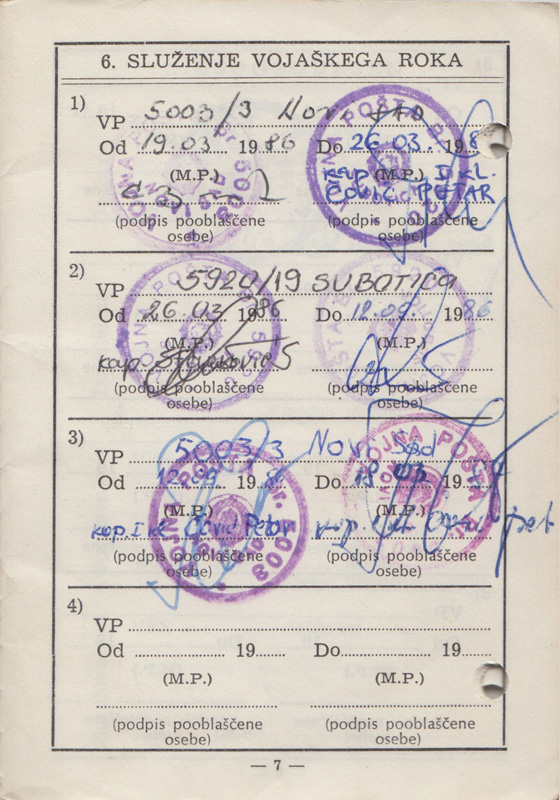 6. SLUŽENJE VOJAŠKEGA ROKA
1)
VP 5003/3 Novi SAD
Od 19.03 1986 Do 26 03. 198
(M.P.) (M.P.) kap. I kl.
ČOVIĆ PETAR
(podpis pooblaščene osebe) (podpis pooblaščene osebe)
2)
VP 5920/19 SUBOTICA
Od 26.03 1986 Do 12.09. 1986
(M.P.) (M.P.)
kap.
(podpis pooblaščene osebe) (podpis pooblaščene osebe)
3)
VP 5003/3 Novi Sad
Od 12.09. 1986 Do 13 03. 19
(M.P.) (M.P.)
kap. I kl. Čović Petar
(podpis pooblaščene osebe) (podpis pooblaščene osebe)
VOJNA POŠTA
br. 5003
4)
VP
Od 19 Do 19
(M.P.) (M.P.)
(podpis pooblaščene osebe) (podpis pooblaščene osebe)
— 7 —